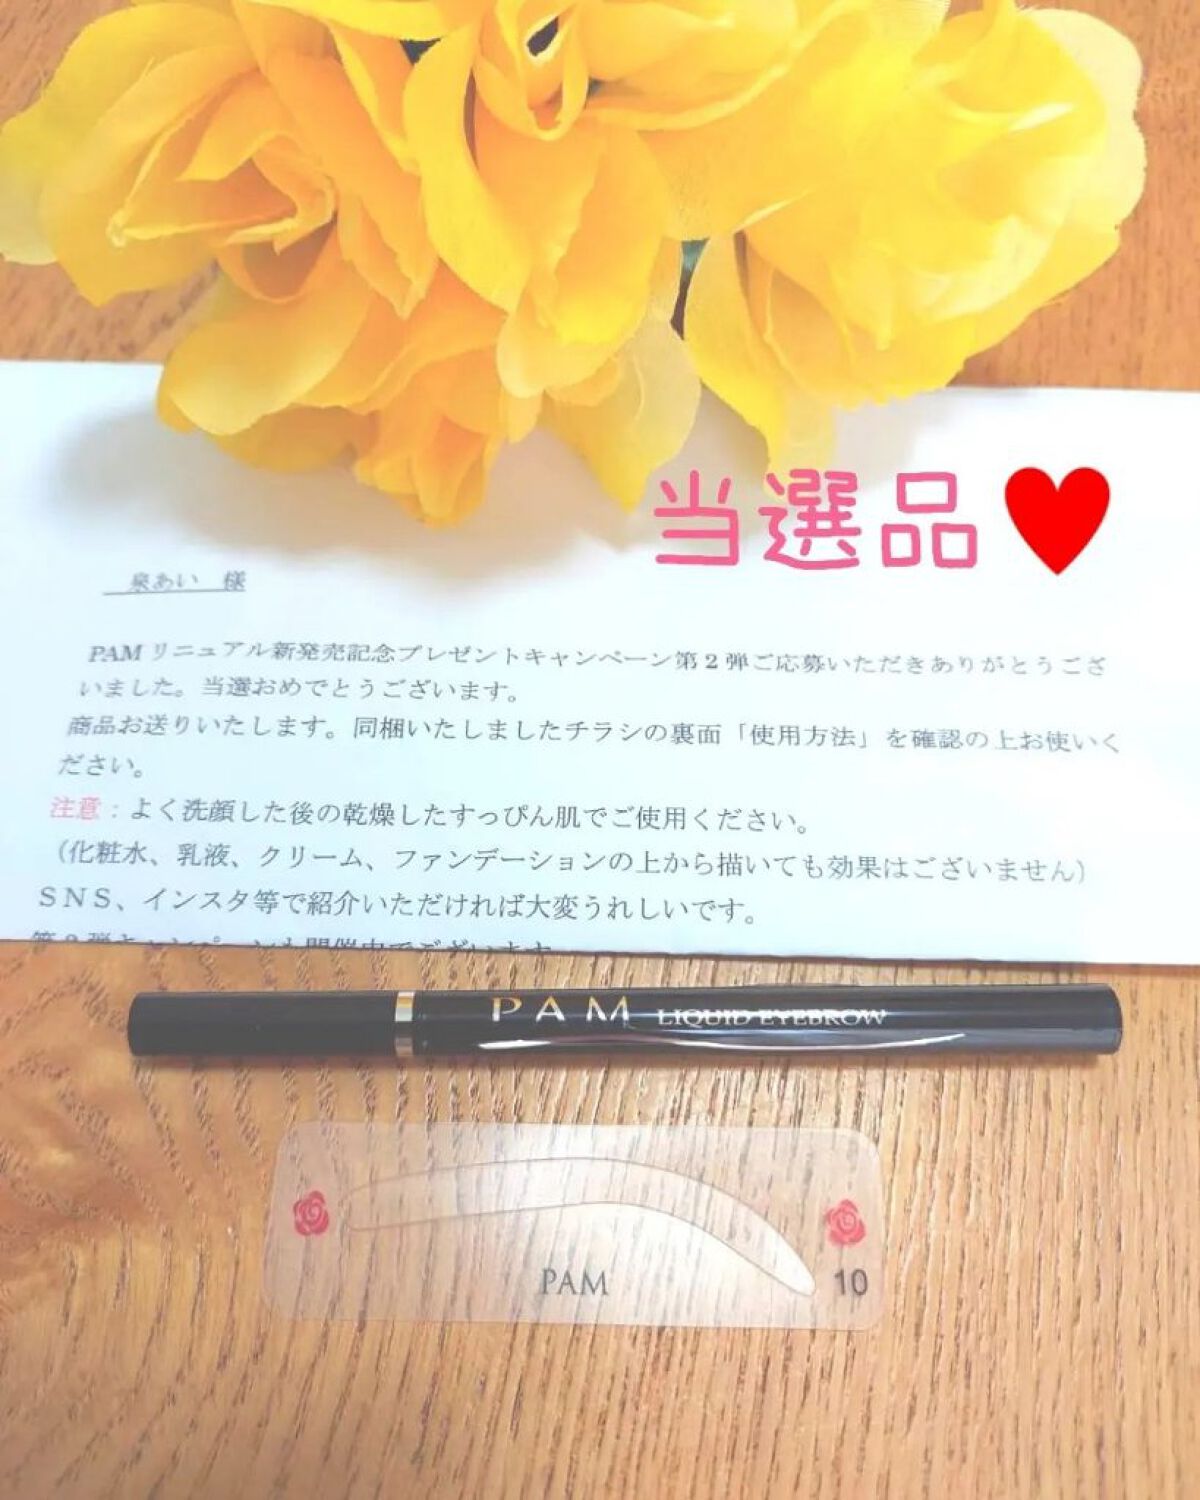 当選品
泉あい 様
PAMリニュアル新発売記念プレゼントキャンペーン第2弾ご応募いただきありがとうござ
いました。当選おめでとうございます。
商品お送りいたします。同梱いたしましたチラシの裏面「使用方法」を確認の上お使いく
ださい。
注意：よく洗顔した後の乾燥したすっぴん肌でご使用ください。
（化粧水、乳液、クリーム、ファンデーションの上から描いても効果はございません）
SNS、インスタ等で紹介いただければ大変うれしいです。
PAM LIQUID EYEBROW
PAM
10